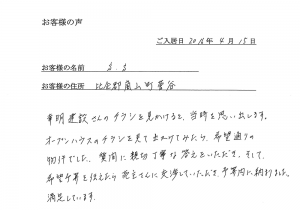 お客様の声
ご入居日 2016年 4月 15日
お客様の名前 S.S
お客様の住所 比企郡嵐山町菅谷
幸明建設さんのチラシを見かけると、当時を思い出します。
オープンハウスのチラシを見て出かけてみたら、希望通りの
物件でした。質問に親切丁寧な答えをいただき、そして、
希望予算を伝えたら売主さんに交渉していただき予算内に納まりました。
満足しています。